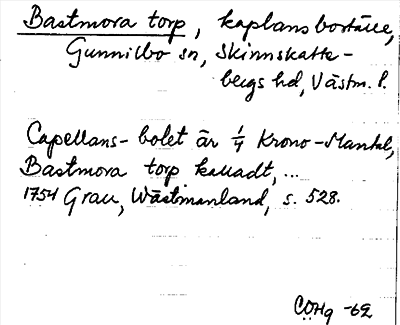 Bastmora torp, kaplansboställe,
Gunnilbo sn, Skinnskatte-
bergs hd, Västm. l.
Capellans-bolet är 1/4 Krono-Mantal,
Bastmora torp kalladt, ...
1754 Grau, Wästmanland, s. 528.
CÖHq -62